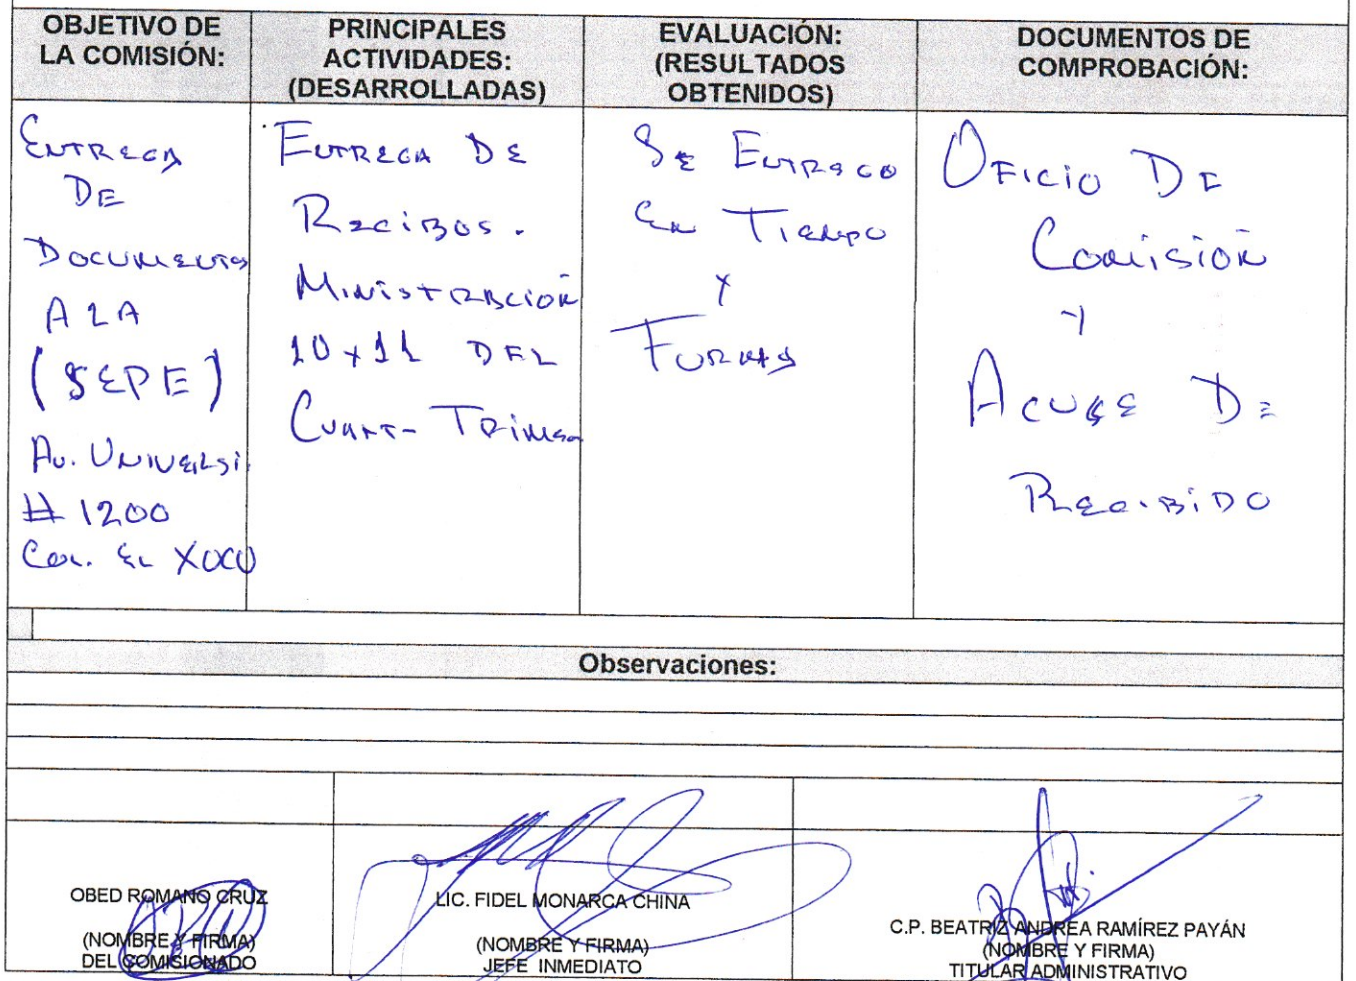 OBJETIVO DE
LA COMISIÓN:
PRINCIPALES
ACTIVIDADES:
(DESARROLLADAS)
EVALUACIÓN:
(RESULTADOS
OBTENIDOS)
DOCUMENTOS DE
COMPROBACIÓN:
ENTREGA
DE
DOCUMENTOS
A LA
(SEPE)
AV. UNIVERSI
# 1200
COL. EL XOCO
ENTREGA DE
RECIBOS.
MINISTRACIÓN
10 Y 11 DEL
CUARTO TRIMES
SE ENTREGO
EN TIEMPO
Y
FORMAS
OFICIO DE
COMISIÓN
Y
ACUSE DE
RECIBIDO
Observaciones:
OBED ROMANO CRUZ
(NOMBRE Y FIRMA)
DEL COMISIONADO
LIC. FIDEL MONARCA CHINA
(NOMBRE Y FIRMA)
JEFE INMEDIATO
C.P. BEATRIZ ANDREA RAMÍREZ PAYÁN
(NOMBRE Y FIRMA)
TITULAR ADMINISTRATIVO